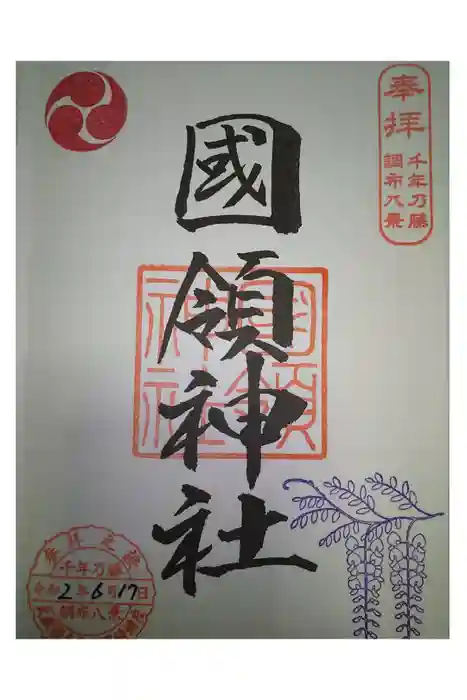 奉拝
千年乃藤
調布八景
國領神社
國領神社
千年乃藤
令和2年6月17日
調布八景